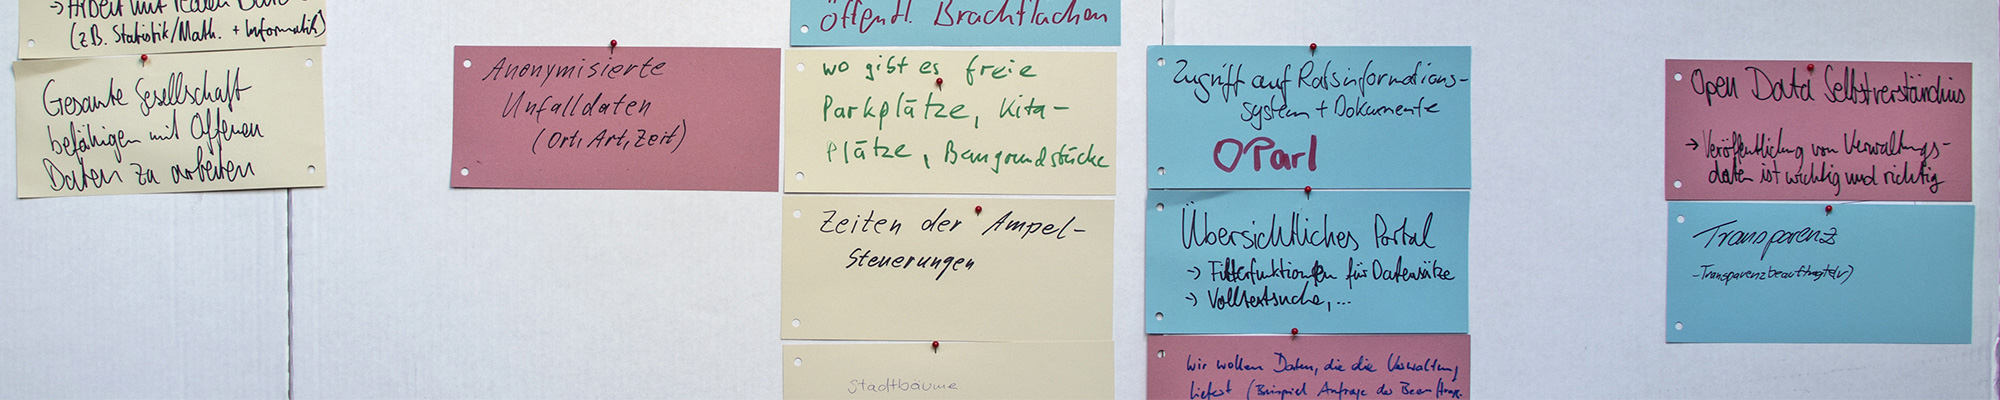 → Arbeit mit realen
(z.B. Statistik/Math. + Informatik)
Gesamte Gesellschaft
befähigen mit Offenen
Daten zu arbeiten
Anonymisierte
Unfalldaten
(Ort, Art, Zeit)
öffentl. Brachflächen
wo gibt es freie
Parkplätze, Kita-
Plätze, Baugrundstücke
Zeiten der Ampel-
Steuerungen
Stadtbäume
Zugriff auf Ratsinformations-
system + Dokumente
OParl
Übersichtliches Portal
→ Filterfunktionen für Datensätze
→ Volltextsuche, ...
Wir wollen Daten, die die Verwaltung
liefert (Beispiel Anfrage der
Open Data Selbstverständnis
→ Veröffentlichung von Verwaltungs-
daten ist wichtig und richtig
Transparenz
- Transparenzbeauftragte(r)